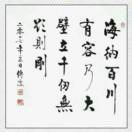 海纳百川
有容乃大
壁立千仞無
欲則剛